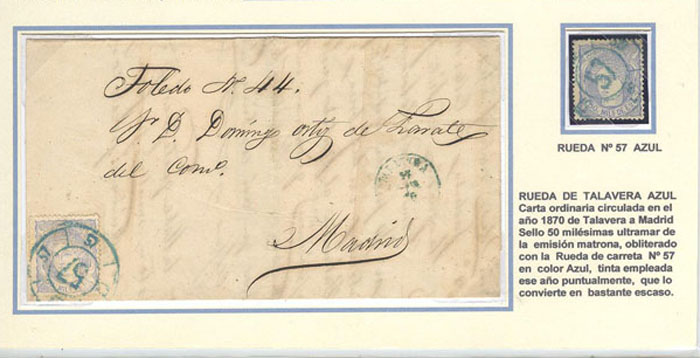 Toledo N. 44.
Sr D. Domingo Ortiz de Zarate
del Com.º
Madrid
57
57
57
RUEDA Nº 57 AZUL
RUEDA DE TALAVERA AZUL
Carta ordinaria circulada en el
año 1870 de Talavera a Madrid
Sello 50 milésimas ultramar de
la emisión matrona, obliterado
con la Rueda de carreta Nº 57
en color Azul, tinta empleada
ese año puntualmente, que lo
convierte en bastante escaso.